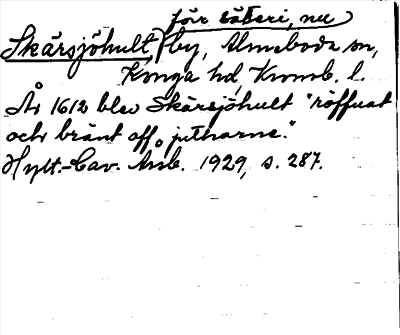 för säteri, nu
Skärsjöhult, by, Almeboda sn,
Konga hd, Kronob. l.
År 1612 blev Skärsjöhult "röffuat
och bränt aff jutharne."
Hylt.-Cav. Årsb. 1929, s. 287.